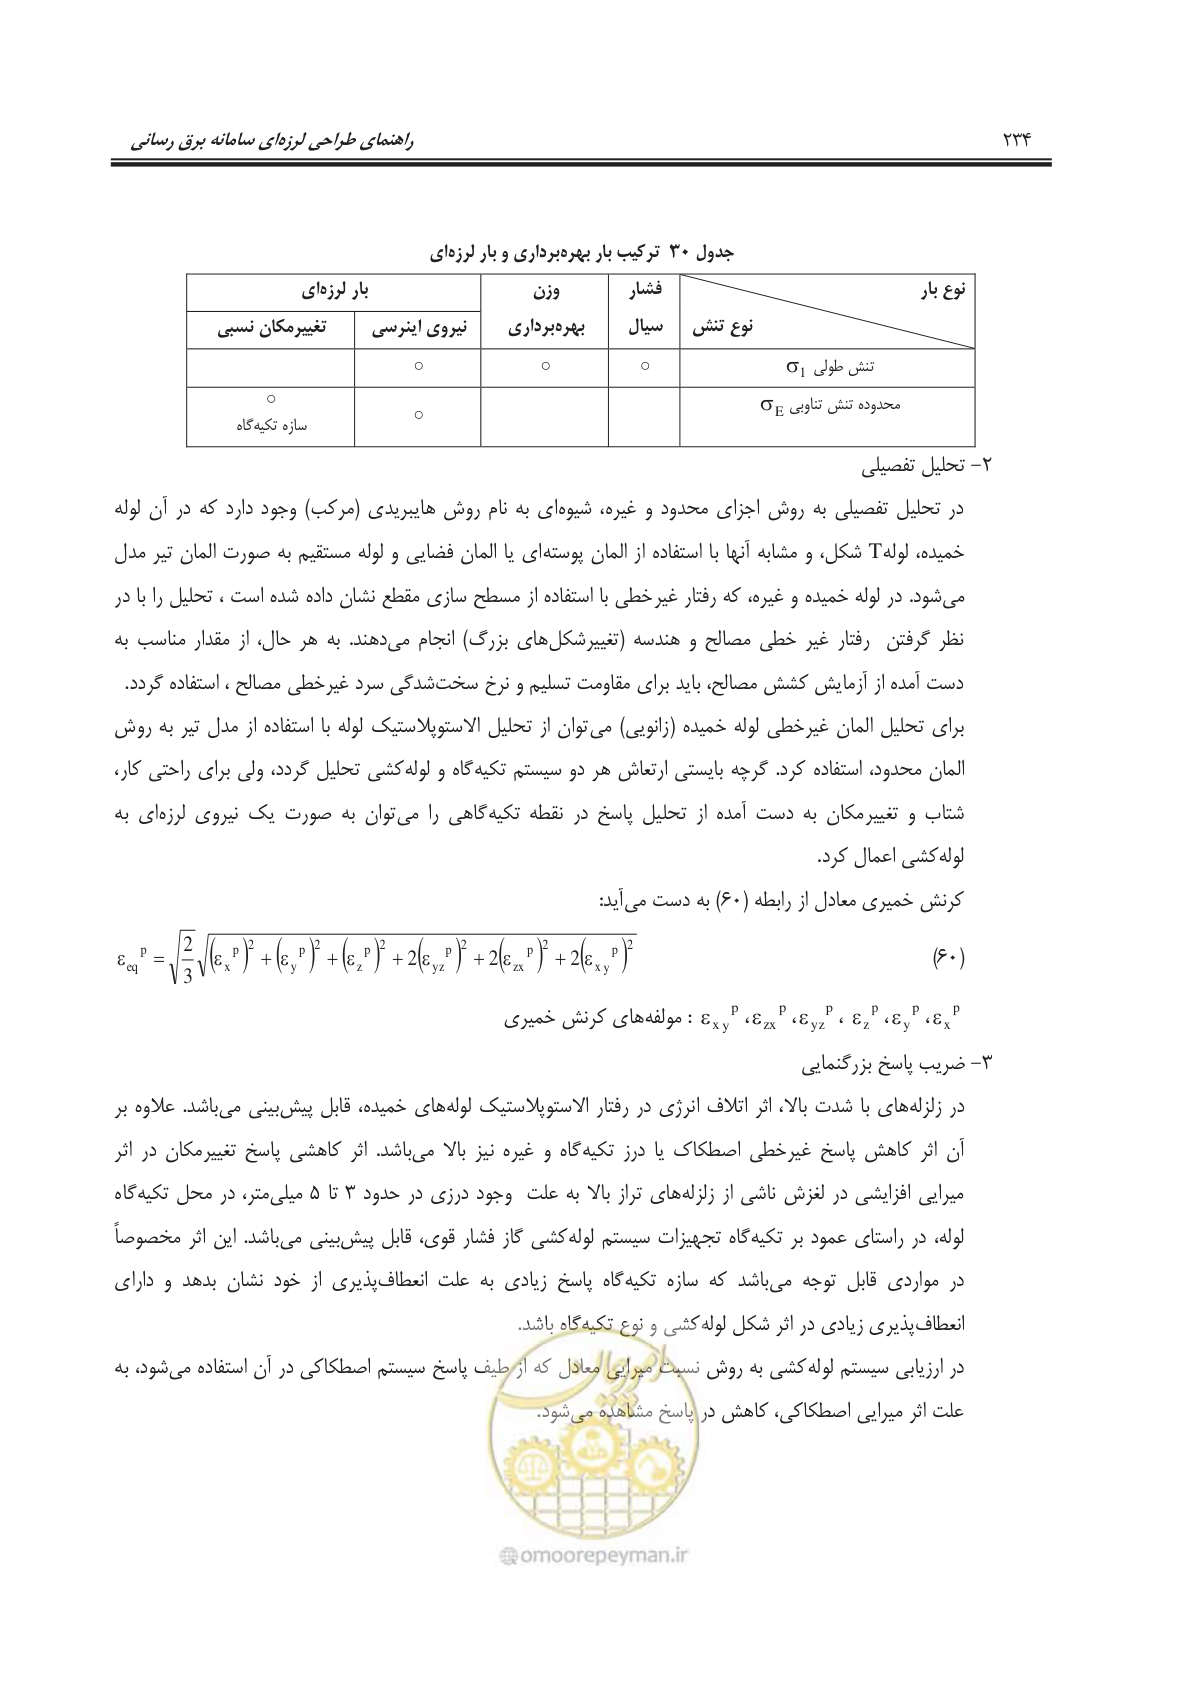 ۲۳۴ راهنمای طراحی لرزه‌ای سامانه برق رسانی
جدول ۳۰ ترکیب بار بهره‌برداری و بار لرزه‌ای
نوع بار فشار وزن بار لرزه‌ای
نوع تنش سیال بهره‌برداری نیروی اینرسی تغییرمکان نسبی
تنش طولی σ1 ○ ○ ○
محدوده تنش تناوبی σE ○ ○
سازه تکیه‌گاه
۲- تحلیل تفصیلی
در تحلیل تفصیلی به روش اجزای محدود و غیره، شیوه‌ای به نام روش هایبریدی (مرکب) وجود دارد که در آن لوله
خمیده، لولهT شکل، و مشابه آنها با استفاده از المان پوسته‌ای یا المان فضایی و لوله مستقیم به صورت المان تیر مدل
می‌شود. در لوله خمیده و غیره، که رفتار غیرخطی با استفاده از مسطح سازی مقطع نشان داده شده است ، تحلیل را با در
نظر گرفتن رفتار غیر خطی مصالح و هندسه (تغییرشکل‌های بزرگ) انجام می‌دهند. به هر حال، از مقدار مناسب به
دست آمده از آزمایش کشش مصالح، باید برای مقاومت تسلیم و نرخ سخت‌شدگی سرد غیرخطی مصالح ، استفاده گردد.
برای تحلیل المان غیرخطی لوله خمیده (زانویی) می‌توان از تحلیل الاستوپلاستیک لوله با استفاده از مدل تیر به روش
المان محدود، استفاده کرد. گرچه بایستی ارتعاش هر دو سیستم تکیه‌گاه و لوله‌کشی تحلیل گردد، ولی برای راحتی کار،
شتاب و تغییرمکان به دست آمده از تحلیل پاسخ در نقطه تکیه‌گاهی را می‌توان به صورت یک نیروی لرزه‌ای به
لوله‌کشی اعمال کرد.
کرنش خمیری معادل از رابطه (۶۰) به دست می‌آید:
(۶۰) εeq^p = √(2/3) √((εx^p)^2 + (εy^p)^2 + (εz^p)^2 + 2(εyz^p)^2 + 2(εzx^p)^2 + 2(εxy^p)^2)
εx^p ،εy^p ،εz^p ، εyz^p ،εzx^p ،εxy^p : مولفه‌های کرنش خمیری
۳- ضریب پاسخ بزرگنمایی
در زلزله‌های با شدت بالا، اثر اتلاف انرژی در رفتار الاستوپلاستیک لوله‌های خمیده، قابل پیش‌بینی می‌باشد. علاوه بر
آن اثر کاهش پاسخ غیرخطی اصطکاک یا درز تکیه‌گاه و غیره نیز بالا می‌باشد. اثر کاهشی پاسخ تغییرمکان در اثر
میرایی افزایشی در لغزش ناشی از زلزله‌های تراز بالا به علت وجود درزی در حدود ۳ تا ۵ میلی‌متر، در محل تکیه‌گاه
لوله، در راستای عمود بر تکیه‌گاه تجهیزات سیستم لوله‌کشی گاز فشار قوی، قابل پیش‌بینی می‌باشد. این اثر مخصوصاً
در مواردی قابل توجه می‌باشد که سازه تکیه‌گاه پاسخ زیادی به علت انعطاف‌پذیری از خود نشان بدهد و دارای
انعطاف‌پذیری زیادی در اثر شکل لوله‌کشی و نوع تکیه‌گاه باشد.
در ارزیابی سیستم لوله‌کشی به روش نسبت میرایی معادل که از طیف پاسخ سیستم اصطکاکی در آن استفاده می‌شود، به
علت اثر میرایی اصطکاکی، کاهش در پاسخ مشاهده می‌شود.
امور پیمان
@omoorepeyman.ir